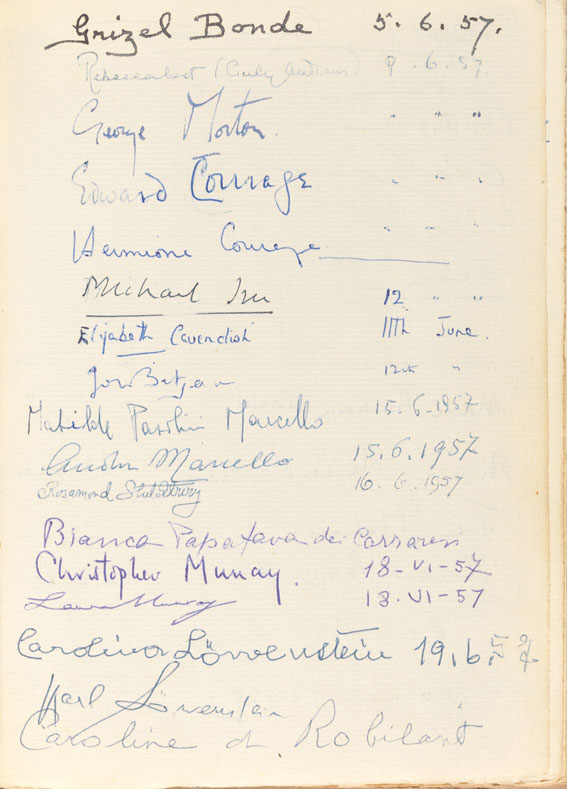 Grizel Bonde 5.6.57.
9.6.57.
George Morton. " " "
Edward Courage " " "
Hermione Courage " " "
Michael 12 " "
Elizabeth Cavendish 11th June.
12th "
Matilde Pasolini Marcello 15.6-1957
Marcello 15.6.1957
Rosamond 16.6.1957
Bianca Papafava dei Carraresi
Christopher Murray. 18-VI-57
Laura Murray 18.VI-57
Carolina Löwenstein 19.6.57
Karl Löwenstein
Caroline di Robilant